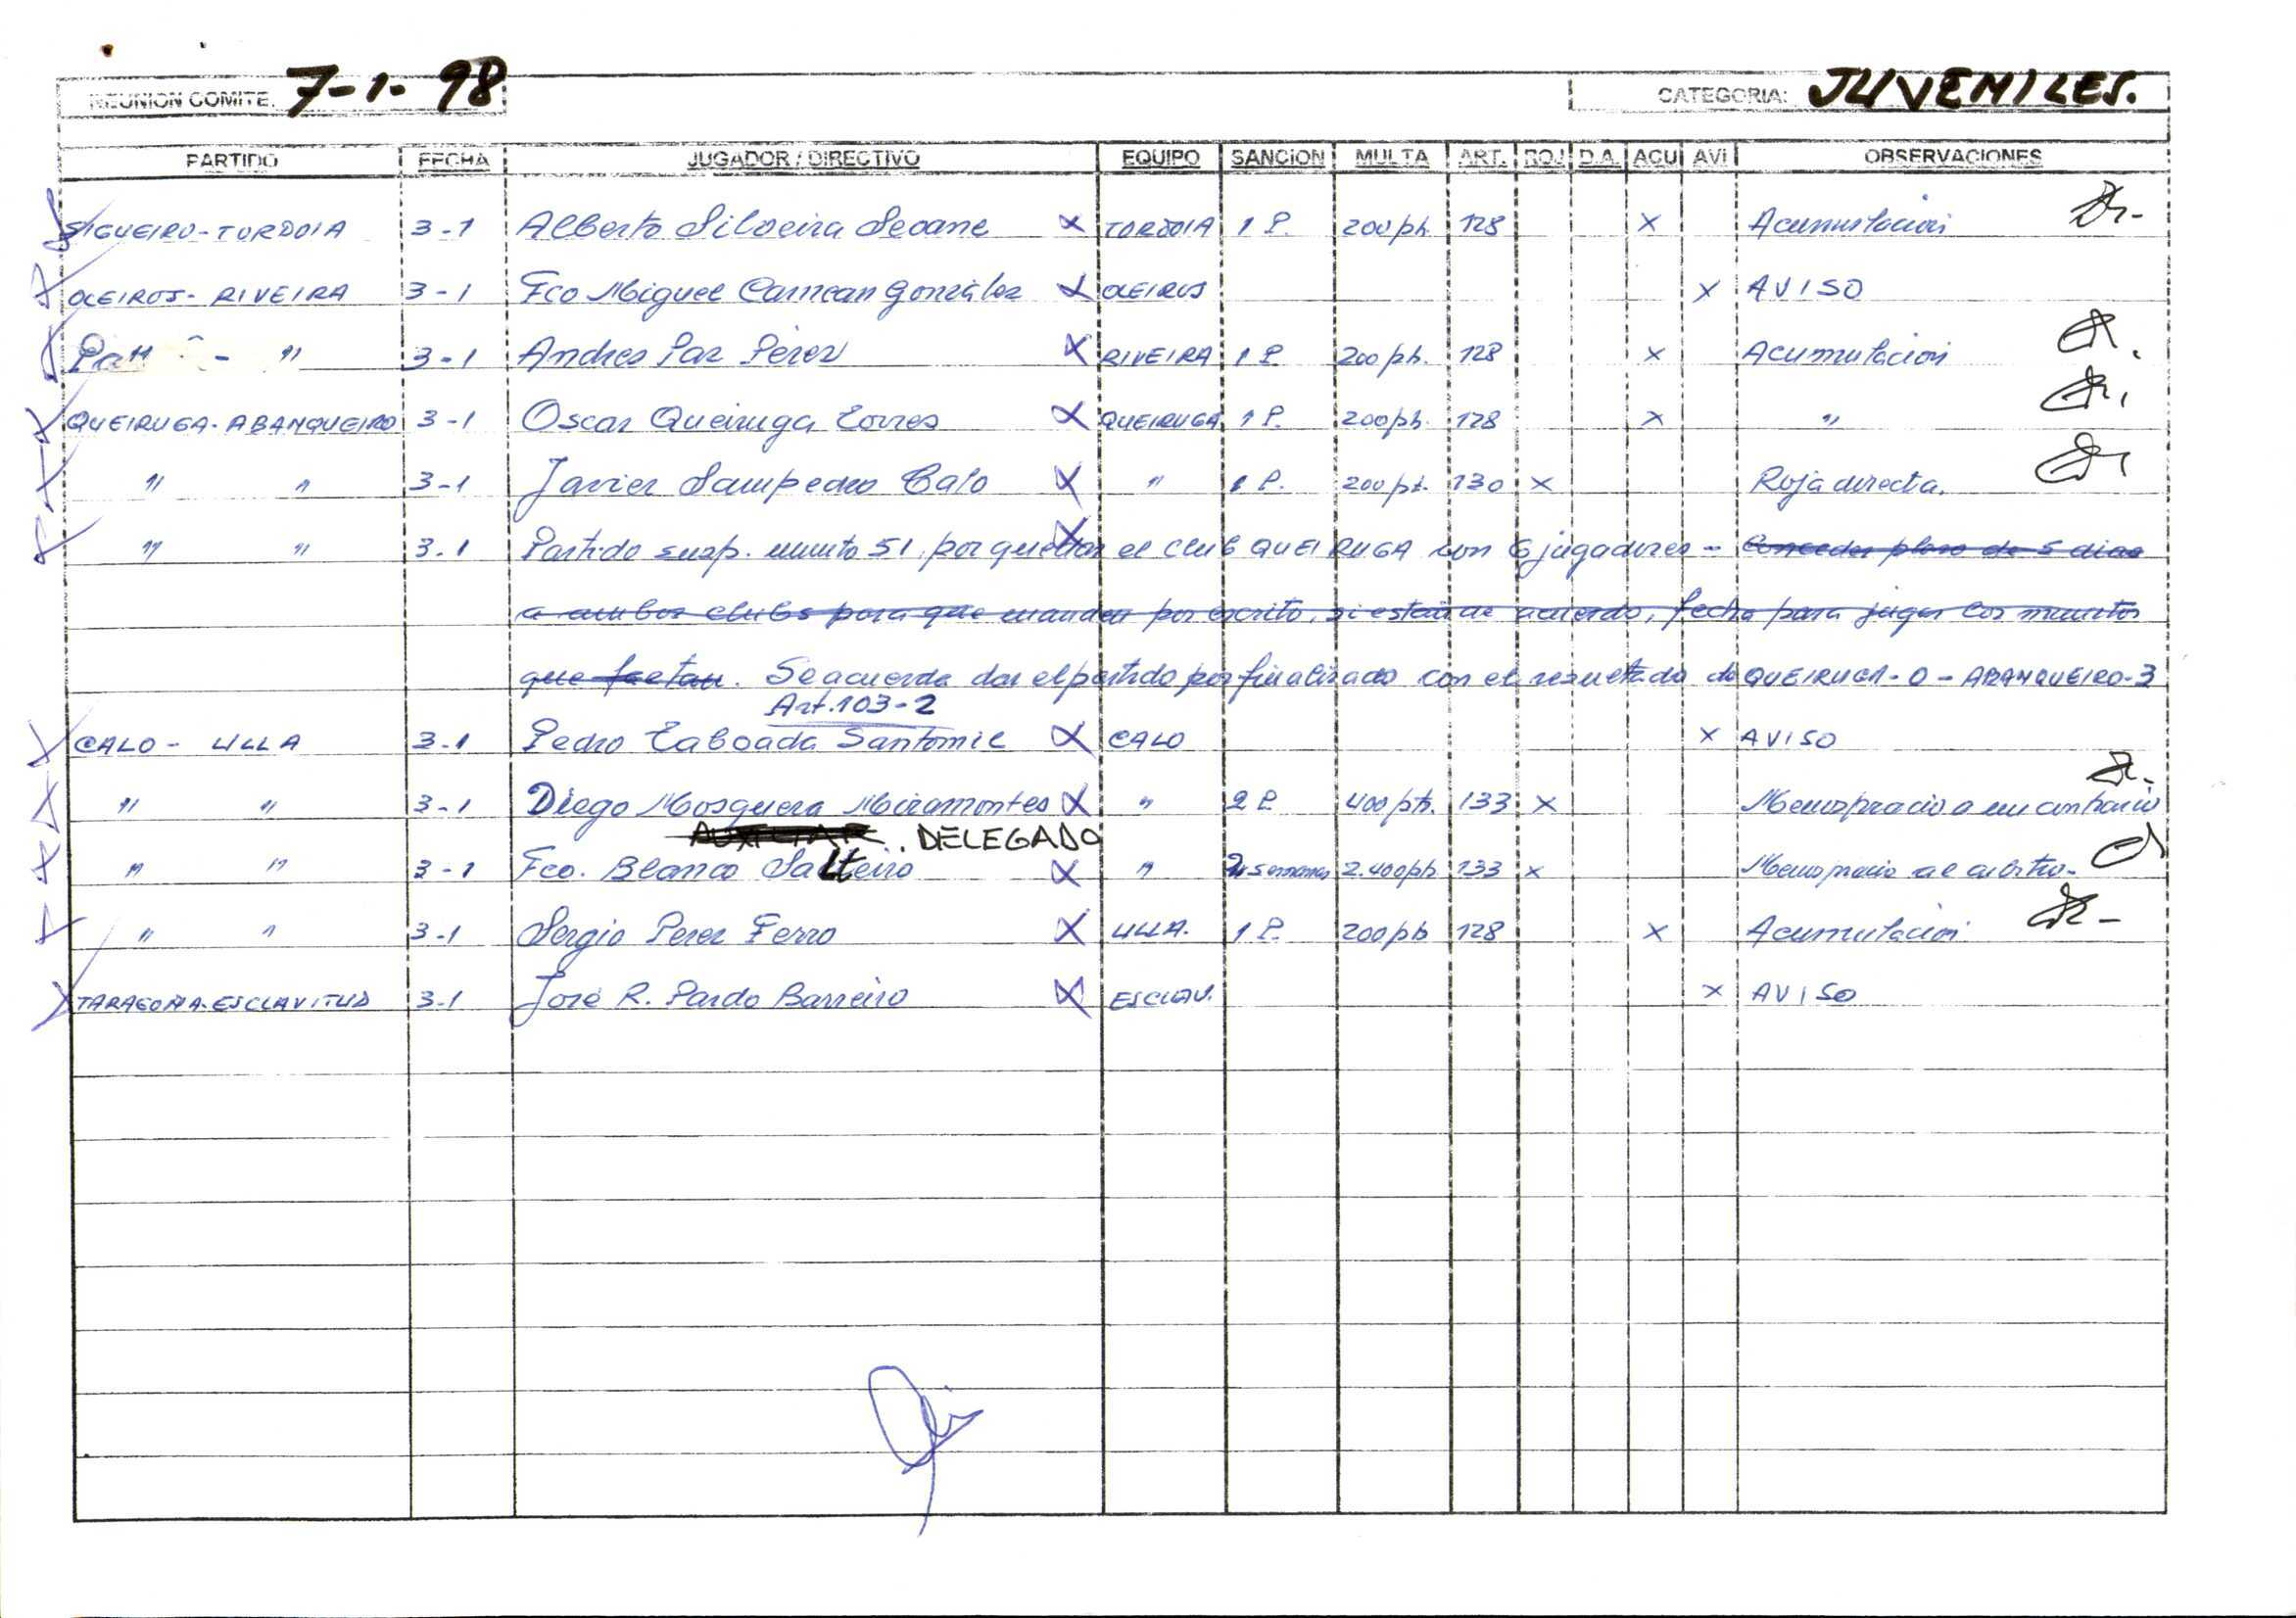 REUNION COMITE: 7-1-98 CATEGORIA: JUVENILES.
PARTIDO FECHA JUGADOR / DIRECTIVO EQUIPO SANCION MULTA ART. ROJ D.A. ACU AVI OBSERVACIONES
SIGUEIRO-TORDOIA 3-1 Alberto Silveira Seoane X TORDOIA 1 P. 200 pts. 128 X Acumulación
OLEIROS-RIVEIRA 3-1 Fco Miguel González X OLEIROS X AVISO
" - " 3-1 Andres Paz Pérez X RIVEIRA 1 P. 200 pts. 128 X Acumulación
QUEIRUGA-ABANQUEIRO 3-1 Oscar Queiruga Torres X QUEIRUGA 1 P. 200 pts. 128 X "
" " 3-1 Javier Sampedro Calo X " 1 P. 200 pts. 130 X Roja directa.
" " 3.1 Partido susp. minuto 51, por quedar el club QUEIRUGA con 6 jugadores - Conceder plazo de 5 dias
a ambos clubs para que manden por escrito, si están de acuerdo, fecha para jugar los minutos
que faltan. Se acuerda dar el partido por finalizado con el resultado de QUEIRUGA-0-ABANQUEIRO-3
Art. 103-2
CALO - ULLA 3-1 Pedro Taboada Santomil X CALO X AVISO
" " 3-1 Diego Mosquera Miramontes X " 2 P. 400 pts. 133 X Menosprecio a un contrario
AUXILIAR. DELEGADO
" " 3-1 Fco. Blanco Salteiro X " 2 semanas 2.400 pts. 133 X Menosprecio al arbitro.
" " 3-1 Sergio Perez Ferro X ULLA. 1 P. 200 pts 128 X Acumulación
TARAGOÑA-ESCLAVITUD 3-1 José R. Pardo Barreiro X ESCLAV. X AVISO